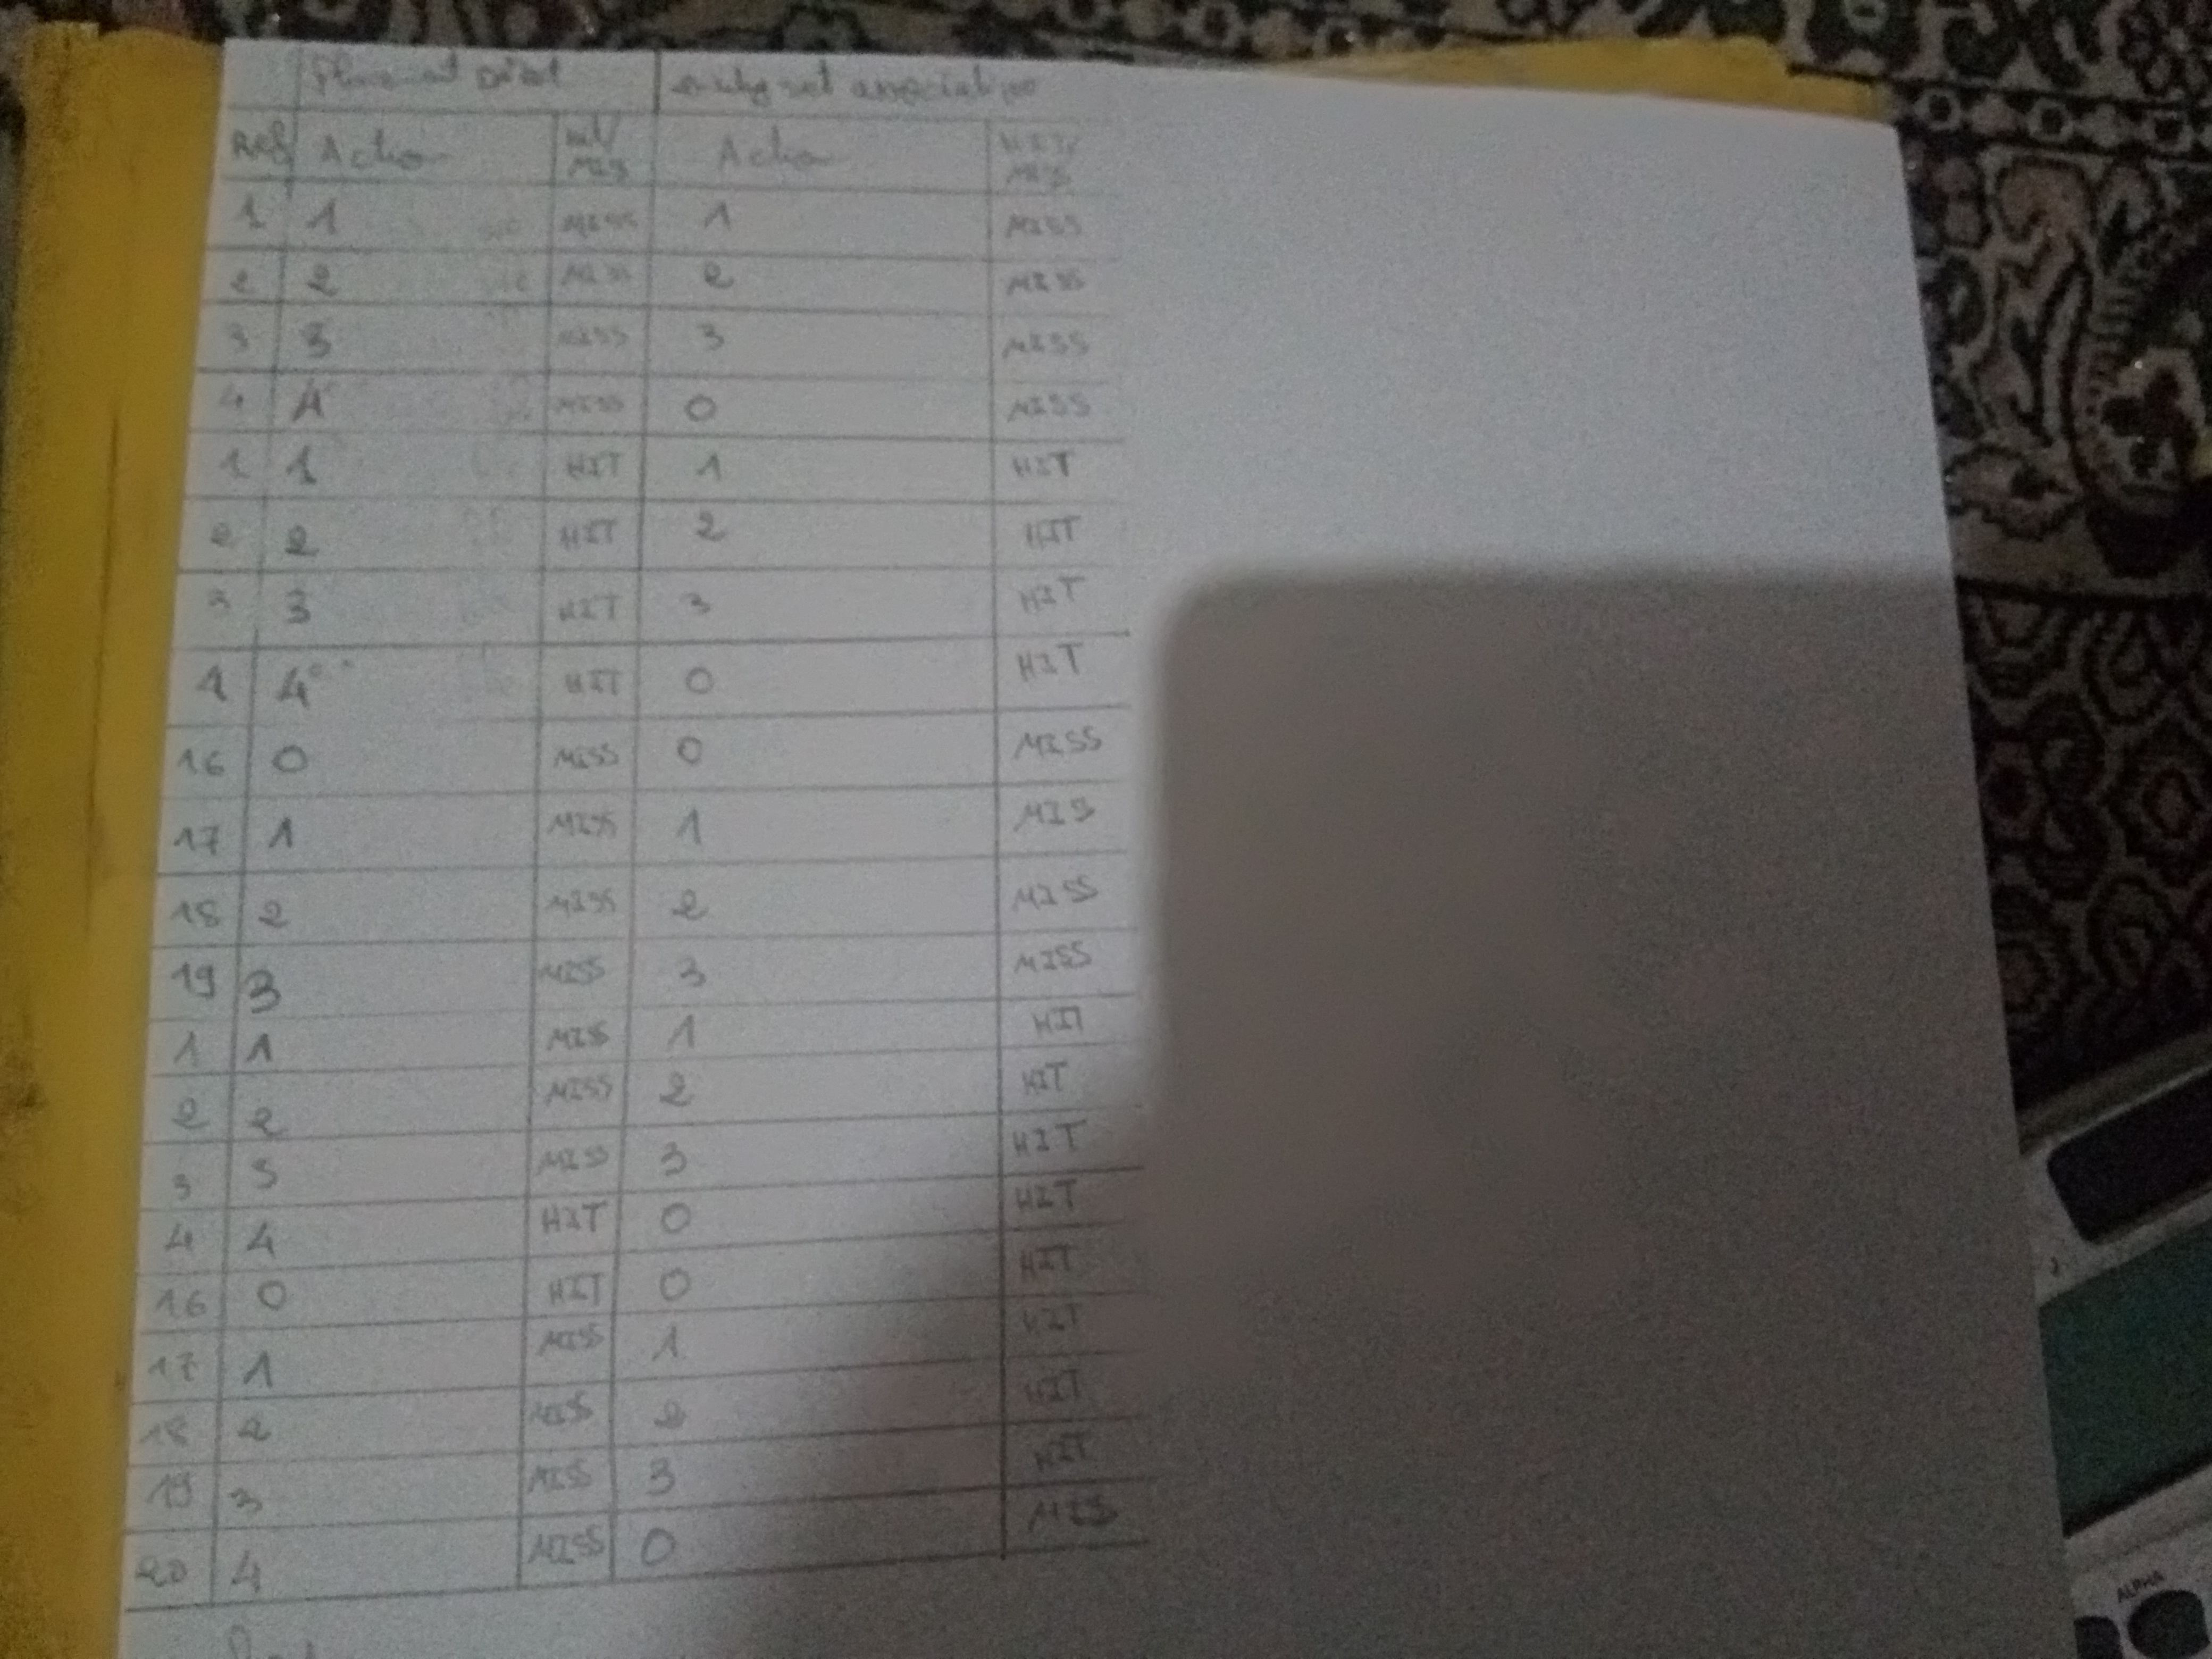 Placement Direct set associative
Ref Action Hit/ Action HIT/
MISS MISS
1 1 MISS 1 MISS
2 2 MISS 2 MISS
3 3 MISS 3 MISS
4 4 MISS 0 MISS
1 1 HIT 1 HIT
2 2 HIT 2 HIT
3 3 HIT 3 HIT
4 4 HIT 0 HIT
16 0 MISS 0 MISS
17 1 MISS 1 MIS
18 2 MISS 2 MISS
19 3 MISS 3 MISS
1 1 MISS 1 HIT
2 2 MISS 2 HIT
3 3 MISS 3 HIT
4 4 HIT 0 HIT
16 0 HIT 0 HIT
17 1 MISS 1 HIT
18 2 MISS 2 HIT
19 3 MISS 3 HIT
20 4 MISS 0 MISS
ALPHA